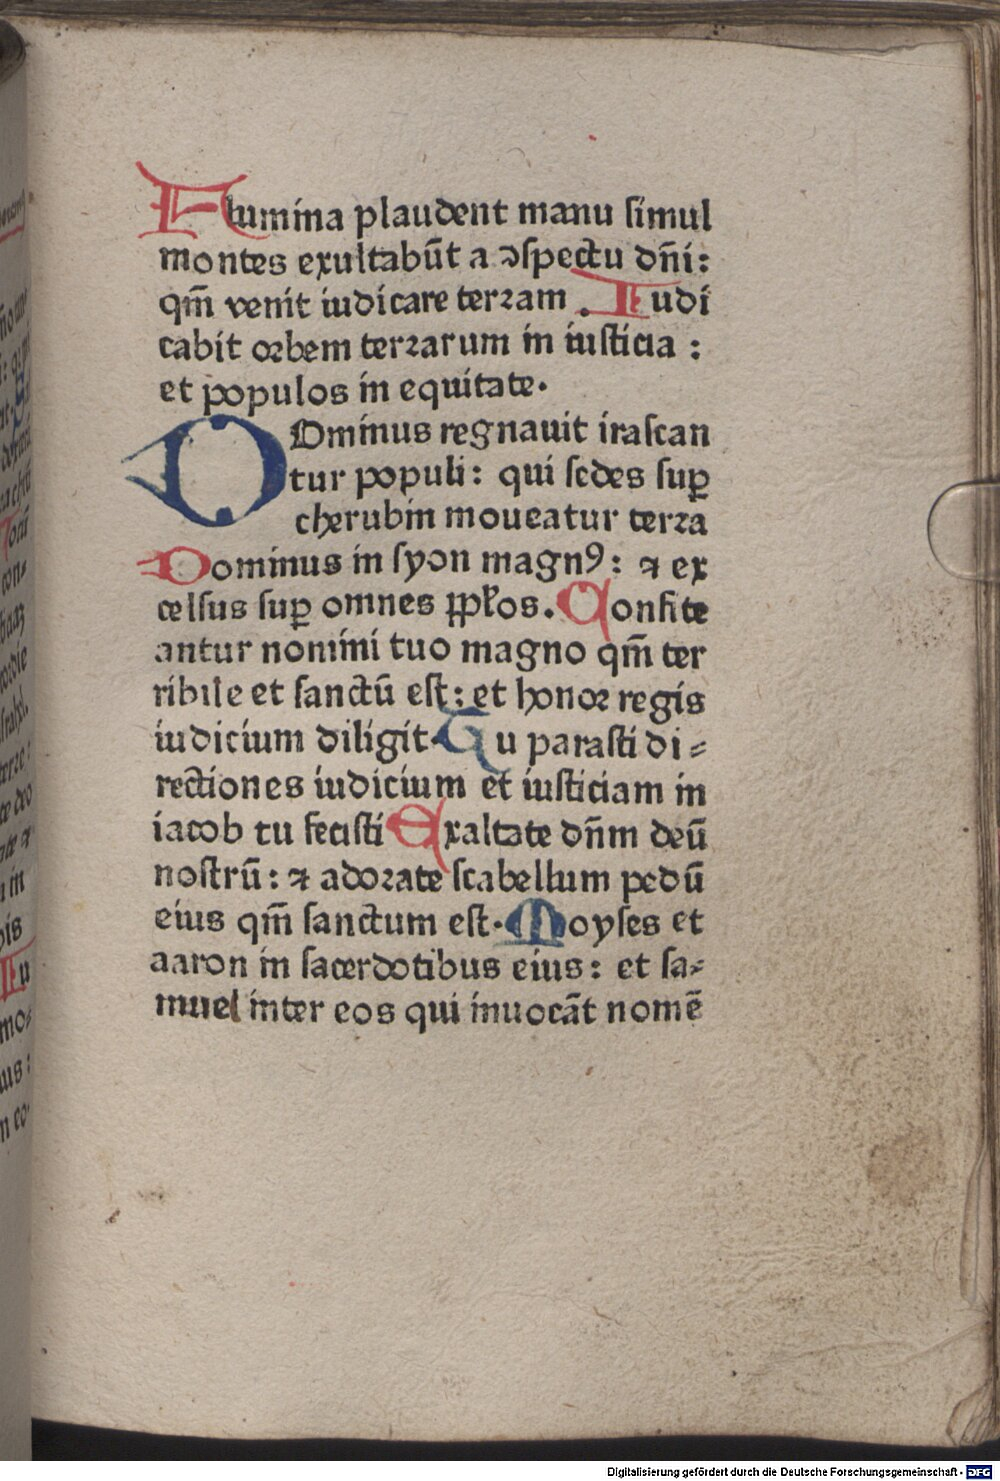 Flumina plaudent manu simul
montes exultabūt a ↄspectu dn̄i:
qm̄ venit iudicare terram. Iudi
cabit orbem terrarum in iusticia :
et populos in equitate.
DOminus regnauit irascan
tur populi: qui sedes suꝑ
cherubin moueatur terra
Dominus in syon magnꝰ: ⁊ ex
celsus suꝑ omnes pp̄los. Confite
antur nomini tuo magno qm̄ ter
ribile et sanctū est: et honor regis
iudicium diligit. Tu parasti di⸗
rectiones iudicium et iusticiam in
iacob tu fecisti Exaltate dn̄m deū
nostrū: ⁊ adorate scabellum pedū
eius qm̄ sanctum est. Moyses et
aaron in sacerdotibus eius: et sa⸗
muel inter eos qui inuocāt nomē
Digitalisierung gefördert durch die Deutsche Forschungsgemeinschaft - DFG